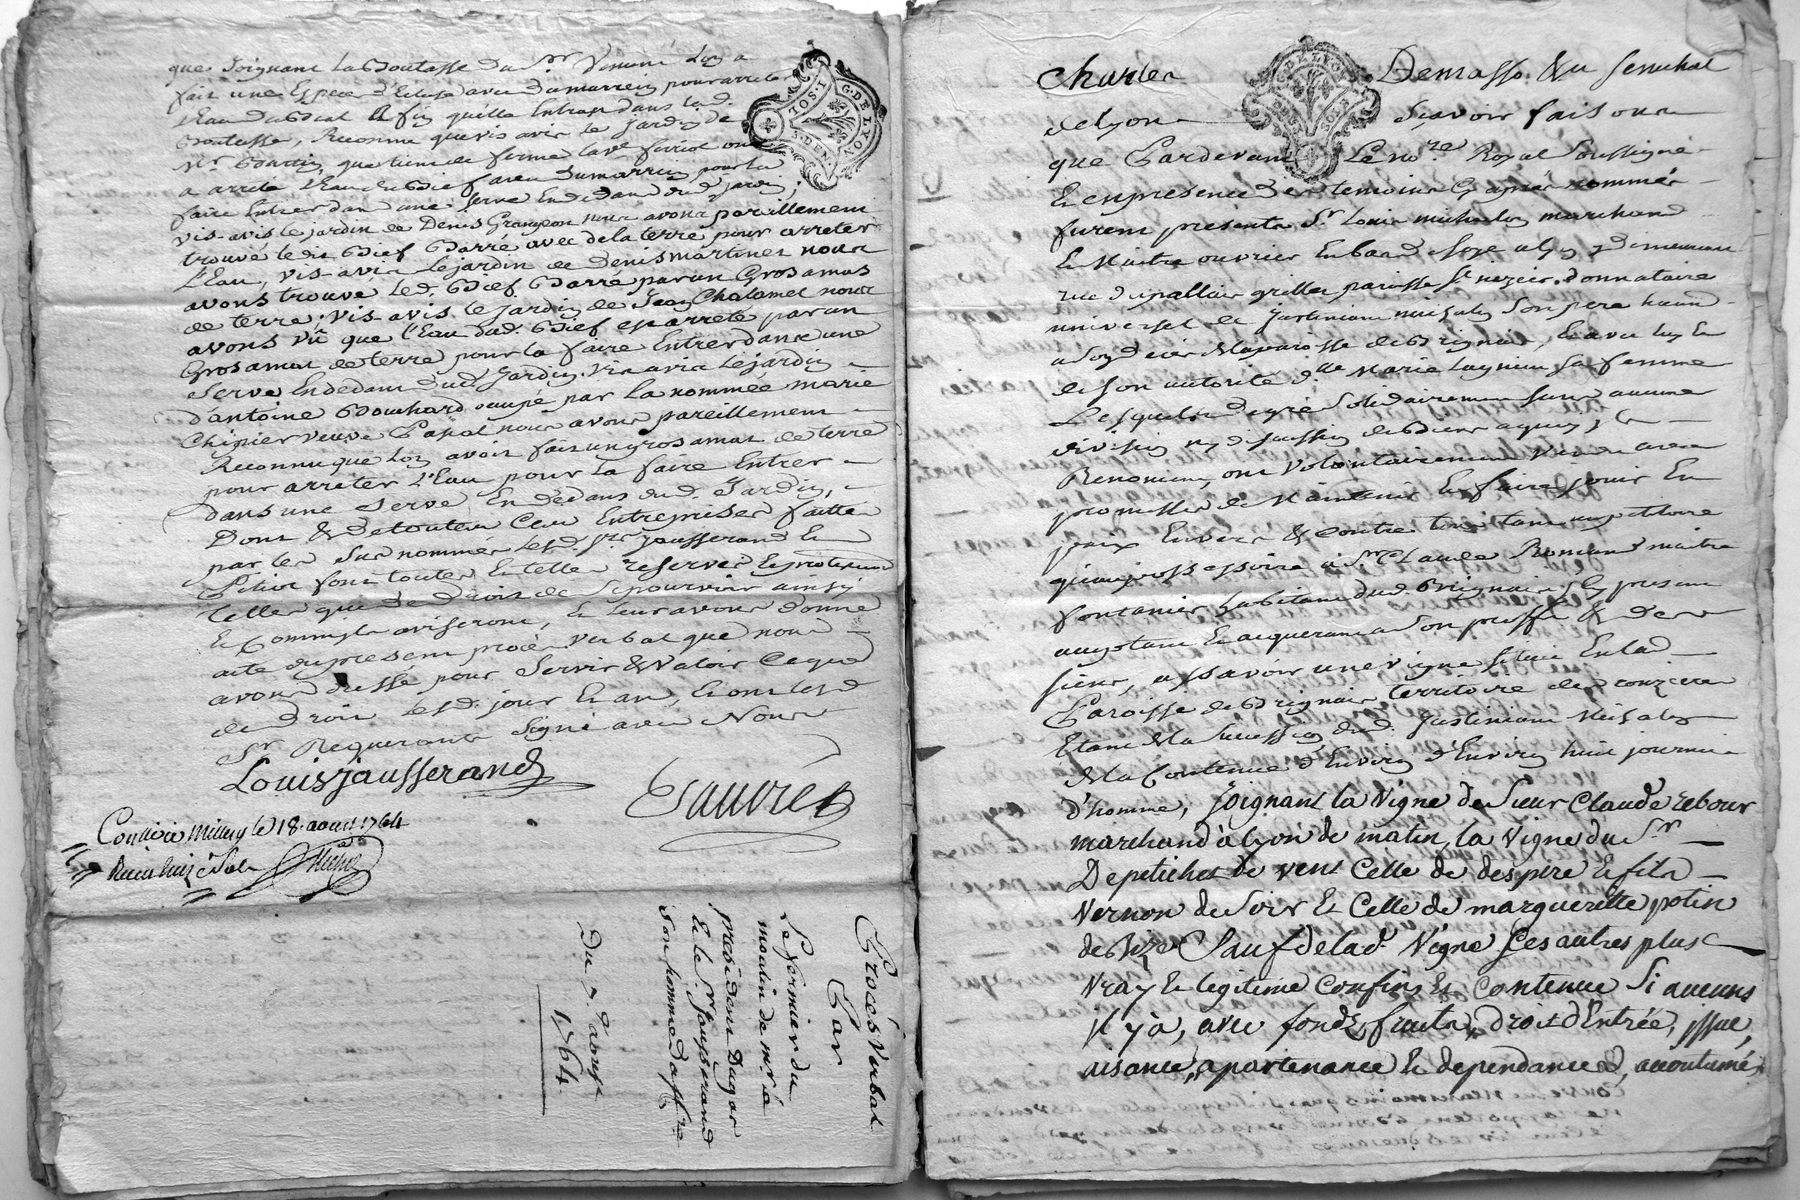 que joignant la Boutasse du Sr
fait une Espece d'Ecluse avec du marrein pour arreter
l'Eau du Bief afin qu'elle Entra dans lad.
Boutasse, Reconnu que vis avis le jardin de
Mr que tient de ferme lad.
a arreté l'Eau du Bief avec du marrein pour la
faire Entrer dans une serve En dedans dud. jardin;
vis-avis le jardin de Denis Grangeon nous avons pareillement
trouvé ledit Bief Barré avec de la terre pour arreter
l'Eau, vis-avis le jardin de denis martinet nous
avons trouvé led. Bief Barré par un Gros amas
de terre, vis-avis le jardin de Jean Chalamel nous
avons vû que l'Eau dud. Bief est arreté par un
Gros amas de terre pour la faire Entrer dans une
serve En dedans dud. Jardin. vis avis le jardin
d'antoine Bouchard occupé par la nommée marie
Chipier veuve Pascal nous avons pareillement
Reconnu que lon avoit fait un gros amas de terre
pour arreter l'Eau pour la faire Entrer
dans une serve En dedans dud. Jardin,
Dont & de toutes Ces Entreprises faittes
par les sus nommés led. Sr jausserand Et
font toutes Et telles reserves Et protestations
telles que de Droit de Se pourvoir ainsy
Et Comm'ils aviseront, Et leur avons donné
acte du present procès verbal que nous
avons dressé pour Servir & Valoir Ce que
de Droit lesd. jour Et an, Et ont lesd.
Srs Requerants Signé avec Nous
Louis jausserand
Contrôlé à Millery le 18. aoust 1764
Reçu huit sols
Procès Verbal
Par
Le fermier du
moulin de mr a
president Dugas
Et le Sr Jausserand
son homme d'affre
Du 7 d'aoust
1764
G. DE LYON
Charles Demasso &a Senechal
de Lyon Sçavoir faisons
que Pardevant Le nore Royal Soussigné
Et en presence des temoins Cy après nommés
furent presents Sr Louis michalon marchand
Et Maitre ouvrier En bas de soye a lyon y demeurant
rue du palliais grillet paroisse St nizier, donnataire
universel de justinien michalon Son pere
de la paroisse de Brignais, Et avec luy Et
de son autorité dlle Marie sa femme
Lesquels de gré Solidairement sans aucune
division ny discussion de Biens a quoy ils
Renoncent, ont Volontairement Vendu avec
promesse de Maintenir Et faire jouir En
paix Envers & contre tous tant au petitoire
qu'au possessoire a Sr Claude Romand maitre
fontanier habitant dud. Brignais icy present
acceptant Et acquerant a Son proffit & des
siens, assavoir une vigne située En lad.
Paroisse de Brignais territoire des
Etant de la Succession dud. justinien Michalon
de la Contenue d'Environ huit journées
d'homme, joignant la vigne de Sieur Claude rebour
marchand à Lyon de matin, la Vigne du Sr
Depetichet de vent Celle de despire Et fils
Vernon de Soir Et Celle de marguerette potin
de Bize Sauf de lad. Vigne Ses autres plus
Vray Et legitime Confins Et Contenue Si aucuns
jl y a, avec fonds, fruits, droit d'Entrée, jssue,
aisance, apartenance Et dependance, accoutumé,